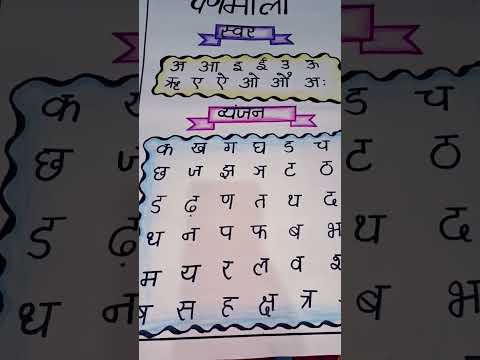 वर्णमाला
स्वर
अ आ इ ई उ ऊ
ऋ ए ऐ ओ औ अः
व्यंजन
क ख ग घ ड च
छ ज झ ञ ट ठ
ड ढ़ ण त थ द
ध न प फ ब भ
म य र ल व श
ष स ह क्ष त्र